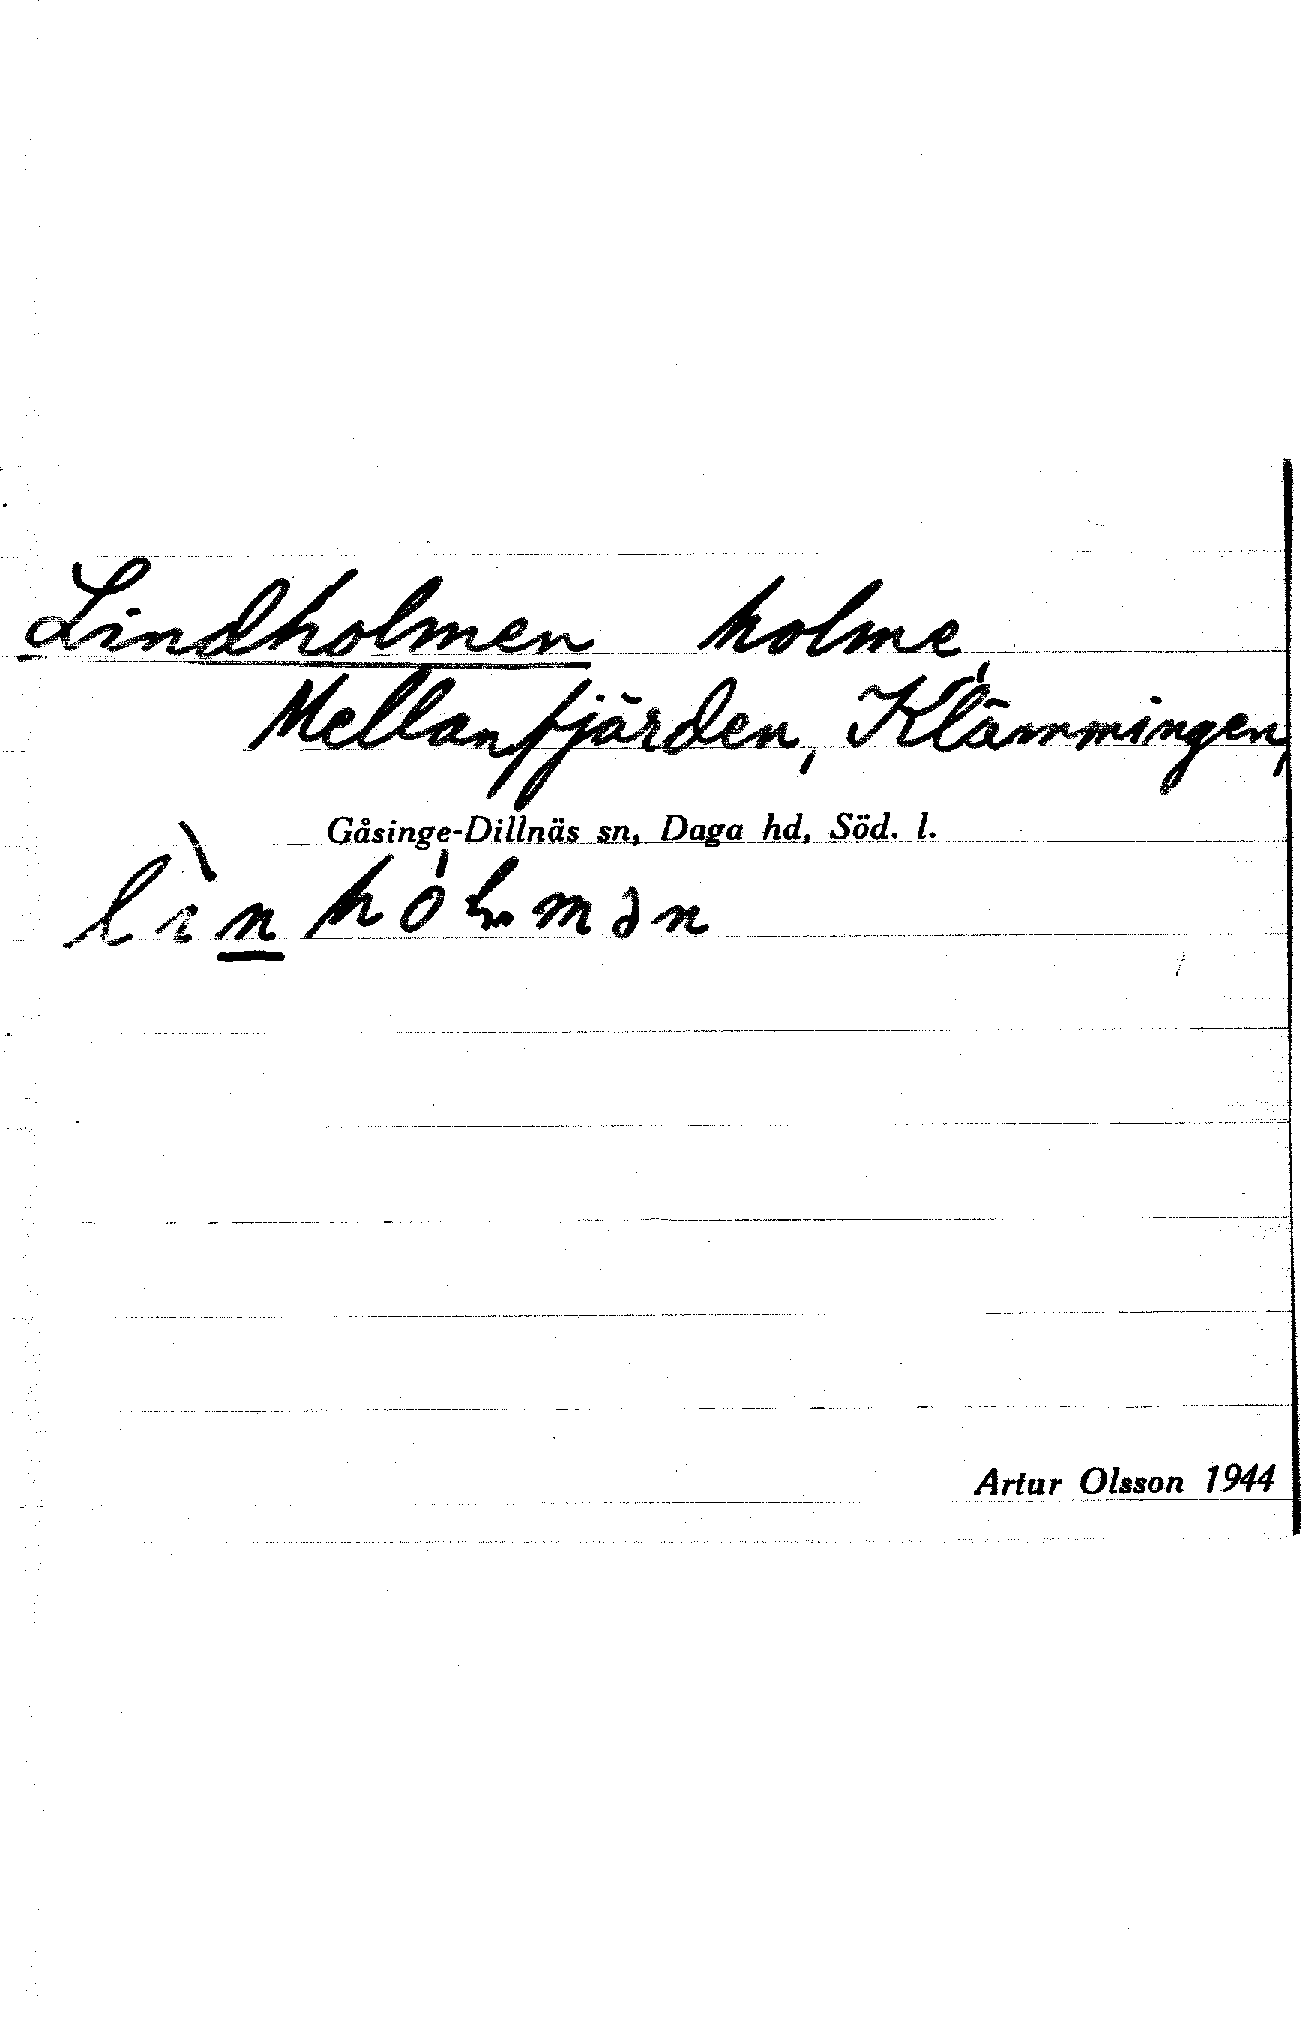 Lindholmen holme,
Mellanfjärden, Klämmingen,
Gåsinge-Dillnäs sn, Daga hd, Söd. l.
Artur Olsson 1944